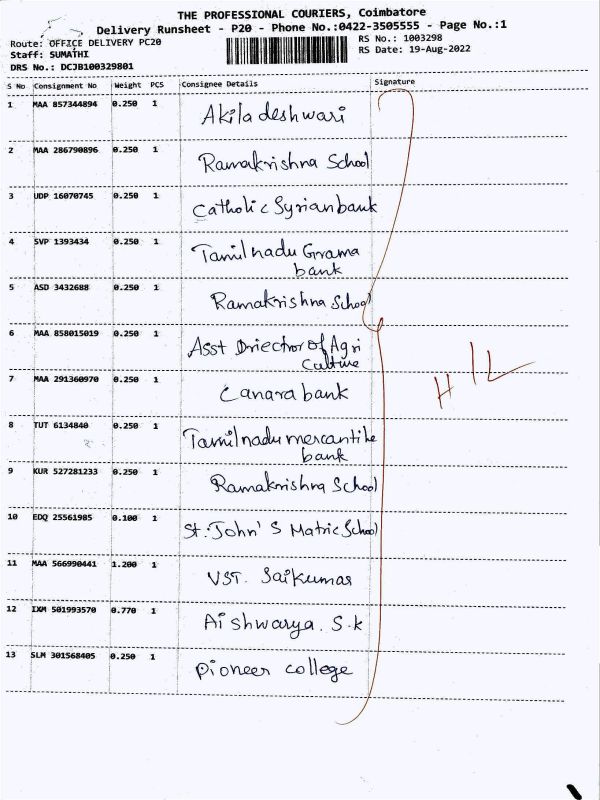 THE PROFESSIONAL COURIERS, Coimbatore
Delivery Runsheet - P20 - Phone No.:0422-3505555 - Page No.:1
Route: OFFICE DELIVERY PC20
RS No.: 1003298
Staff: SUMATHI
RS Date: 19-Aug-2022
DRS No.: DCJB100329801
S No Consignment No Weight PCS Consignee Details Signature
1 MAA 857344894 0.250 1 Akila deshwari
2 MAA 286790896 0.250 1 Ramakrishna School
3 UDP 16070745 0.250 1 Catholic Syrian bank
4 SVP 1393434 0.250 1 Tamilnadu Grama
bank
5 ASD 3432688 0.250 1 Ramakrishna School
6 MAA 858015019 0.250 1 Asst Driector of Agri
culture
7 MAA 291360970 0.250 1 Canara bank
8 TUT 6134840 0.250 1 Tamilnadu mercantile
bank
9 KUR 527281233 0.250 1 Ramakrishna School
10 EDQ 25561985 0.100 1 St. John's Matric School
11 MAA 566990441 1.200 1 VST. Saikumar
12 IXM 501993570 0.770 1 Aishwarya. S.k
13 SLM 301568405 0.250 1 Pioneer college